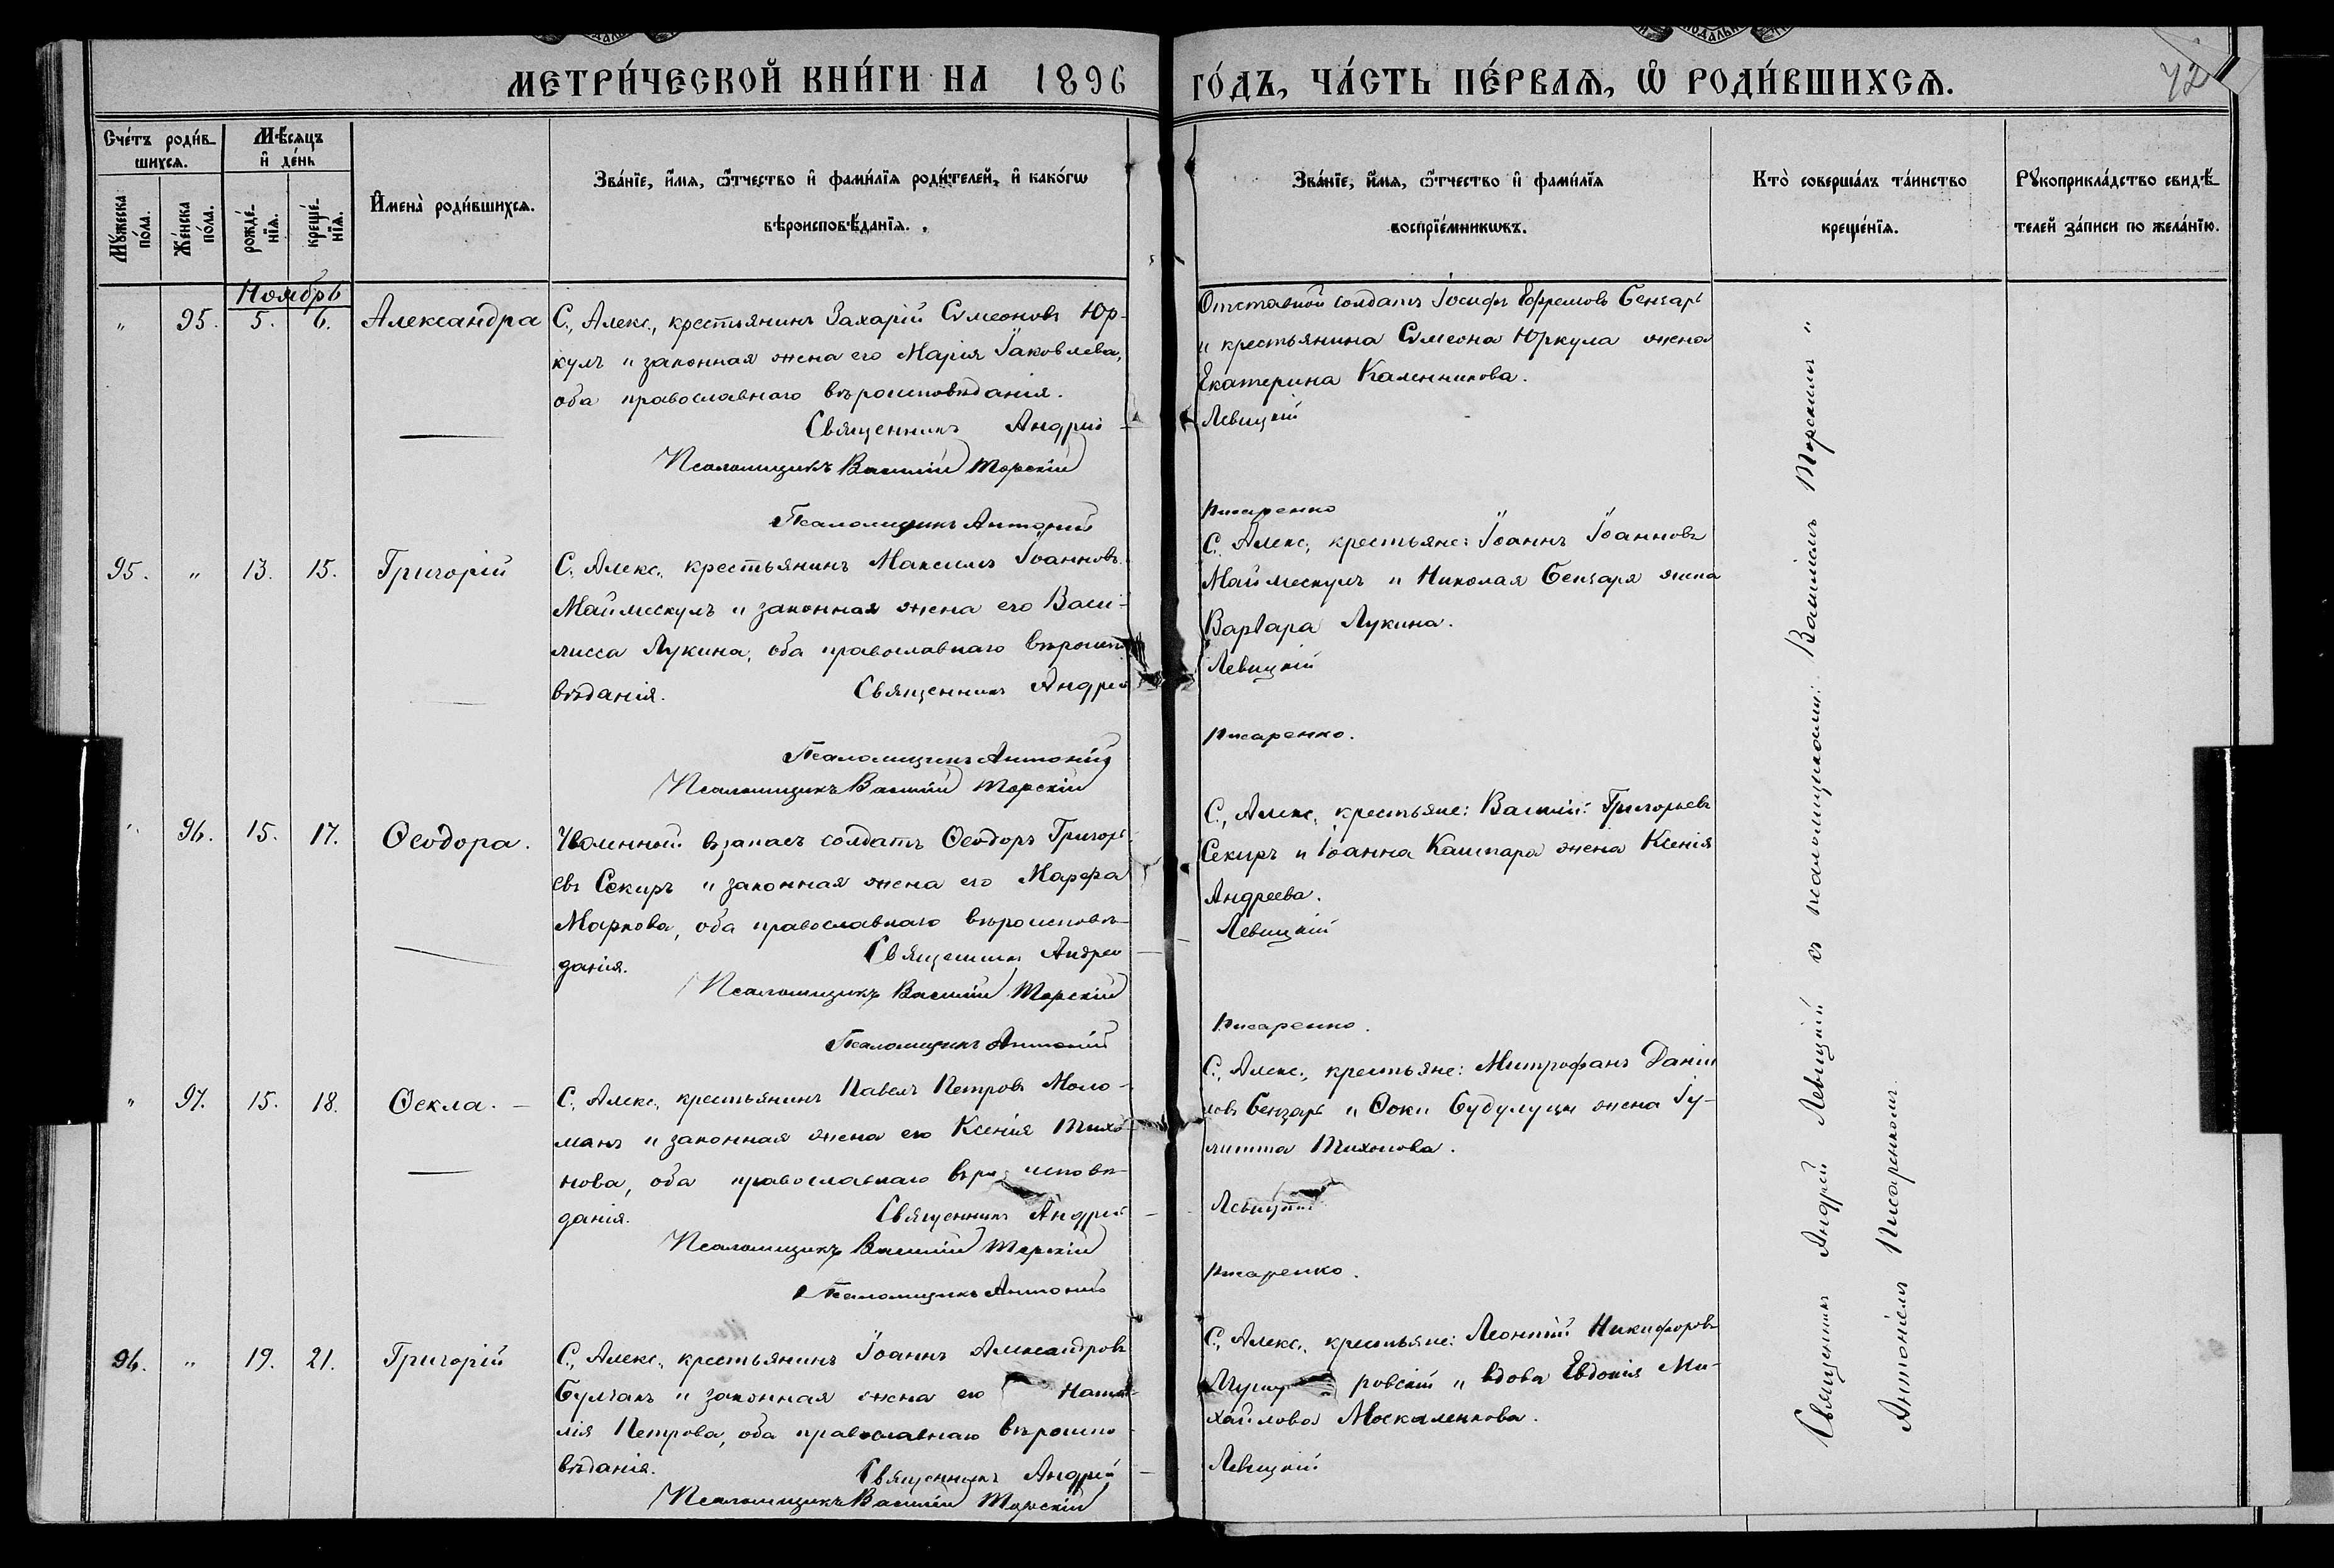 МЕТРИ́ЧЕСКОЙ КНИ́ГИ НА 1896 ГО́ДЪ, ЧА́СТЬ ПЕ́РВАѦ, Ѡ҆ РОДИ́ВШИХСѦ.
42
Сче́тъ роди́в-
шихсѧ.
Мѣ́сѧцъ
и҆ де́нь
Мꙋ́жеска
по́ла.
Же́нска
по́ла.
рожде́-
нїѧ.
креще́-
нїѧ.
И҆мена̀ роди́вшихсѧ.
Зва́нїе, и҆́мѧ, ѻ҆́тчество и҆ фами́лїѧ роди́телей, и҆ како́гѡ
вѣроисповѣ́данїѧ.
Зва́нїе, и҆́мѧ, ѻ҆́тчество и҆ фами́лїѧ
воспрїе́мникѡвъ.
Кто̀ соверша́лъ та́инство
креще́нїѧ.
Рꙋкоприкла́дство свидѣ́-
телей за́писи по жела́нїю.
Ноябрь
" 95. 5. 6. Александра
С. Алекс., крестьянинъ Захарій Сѵмеоновъ Юр-
кулъ и законная жена его Марія Іаковлева,
оба православнаго вѣроисповѣданія.
Священникъ Андрей
Псаломщикъ Василій Торскій
Псаломщикъ Антоній
Отставной солдатъ Іосифъ Ефремовъ Бензарь
и крестьянина Сѵмеона Юркула жена
Екатерина Каленникова.
Левицкій
Писаренко
95. " 13. 15. Григорій
С. Алекс., крестьянинъ Максимъ Іоанновъ
Маймескулъ и законная жена его Васи-
лисса Лукина, оба православнаго вѣроиспо-
вѣданія. Священникъ Андрей
Псаломщикъ Антоній
Псаломщикъ Василій Торскій
С. Алекс., крестьяне: Іоаннъ Іоанновъ
Маймескулъ и Николая Бензаря жена
Варвара Лукина.
Левицкій
Писаренко.
" 96. 15. 17. Ѳеодора.
Уволенной въ запасъ солдатъ Ѳеодоръ Григорь-
евъ Секиръ и законная жена его Марѳа
Маркова, оба православнаго вѣроисповѣ-
данія. Священникъ Андрей
Псаломщикъ Василій Торскій
Псаломщикъ Антоній
С. Алекс., крестьяне: Василій Григорьевъ
Секиръ и Іоанна Кашпара жена Ксенія
Андреева.
Левицкій
Писаренко.
" 97. 15. 18. Ѳекла.
С. Алекс., крестьянинъ Павелъ Петровъ Моло-
манъ и законная жена его Ксенія Тихо-
нова, оба православнаго вѣроисповѣ-
данія. Священникъ Андрей
Псаломщикъ Василій Торскій
Псаломщикъ Антоній
С. Алекс., крестьяне: Митрофанъ Даніи-
ловъ Бензарь и Ѳоки Будулуцы жена Іу-
литта Тихонова.
Левицкій
Писаренко.
96. " 19. 21. Григорій
С. Алекс., крестьянинъ Іоаннъ Александровъ
Булгакъ и законная жена его Ната-
лія Петрова, оба православнаго вѣроиспо-
вѣданія. Священникъ Андрей
Псаломщикъ Василій Торскій
С. Алекс., крестьяне: Леонтій Никифоровъ
ровскій и вдова Евдокія Ми-
хайлова Москаленкова.
Левицкій
Священникъ Андрей Левицкій съ псаломщиками: Василіемъ Торскимъ и
Антоніемъ Писаренкомъ.